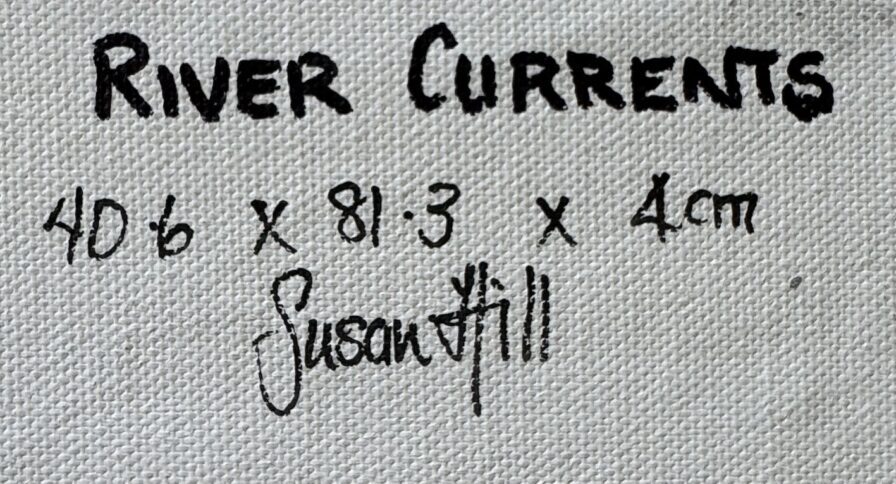 RIVER CURRENTS
40.6 x 81.3 x 4cm
Susan Hill